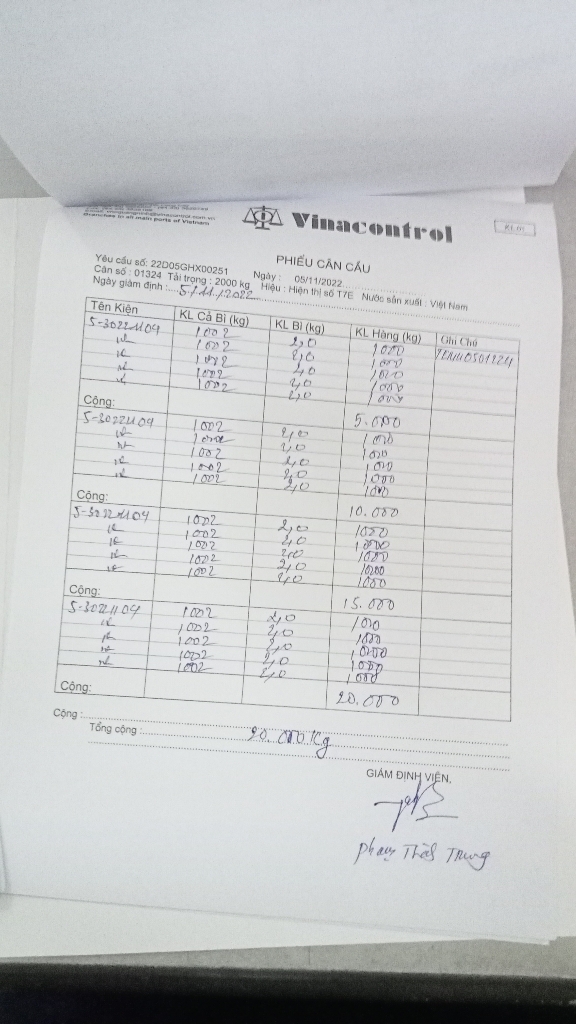 Branches in all main ports of Vietnam
Vinacontrol
PHIẾU CÂN CẨU
Yêu cầu số: 22D05GHX00251 Ngày : 05/11/2022
Cân số : 01324 Tải trọng : 2000 kg Hiệu : Hiện thị số T7E Nước sản xuất : Việt Nam
Ngày giám định : 5/11/2022
Tên Kiện KL Cả Bì (kg) KL Bì (kg) KL Hàng (kg) Ghi Chú
1002 2,0 1000
1002 2,0 1000
1002 2,0 1000
1002 2,0 1000
1002 2,0 1000
Cộng: 5.000
1002 2,0 1000
1002 2,0 1000
1002 2,0 1000
1002 2,0 1000
1002 2,0 1000
Cộng: 10.000
1002 2,0 1000
1002 2,0 1000
1002 2,0 1000
1002 2,0 1000
1002 2,0 1000
Cộng: 15.000
1002 2,0 1000
1002 2,0 1000
1002 2,0 1000
1002 2,0 1000
1002 2,0 1000
Cộng: 20.000
Cộng :
Tổng cộng : 20.000 kg
GIÁM ĐỊNH VIÊN.
Trung